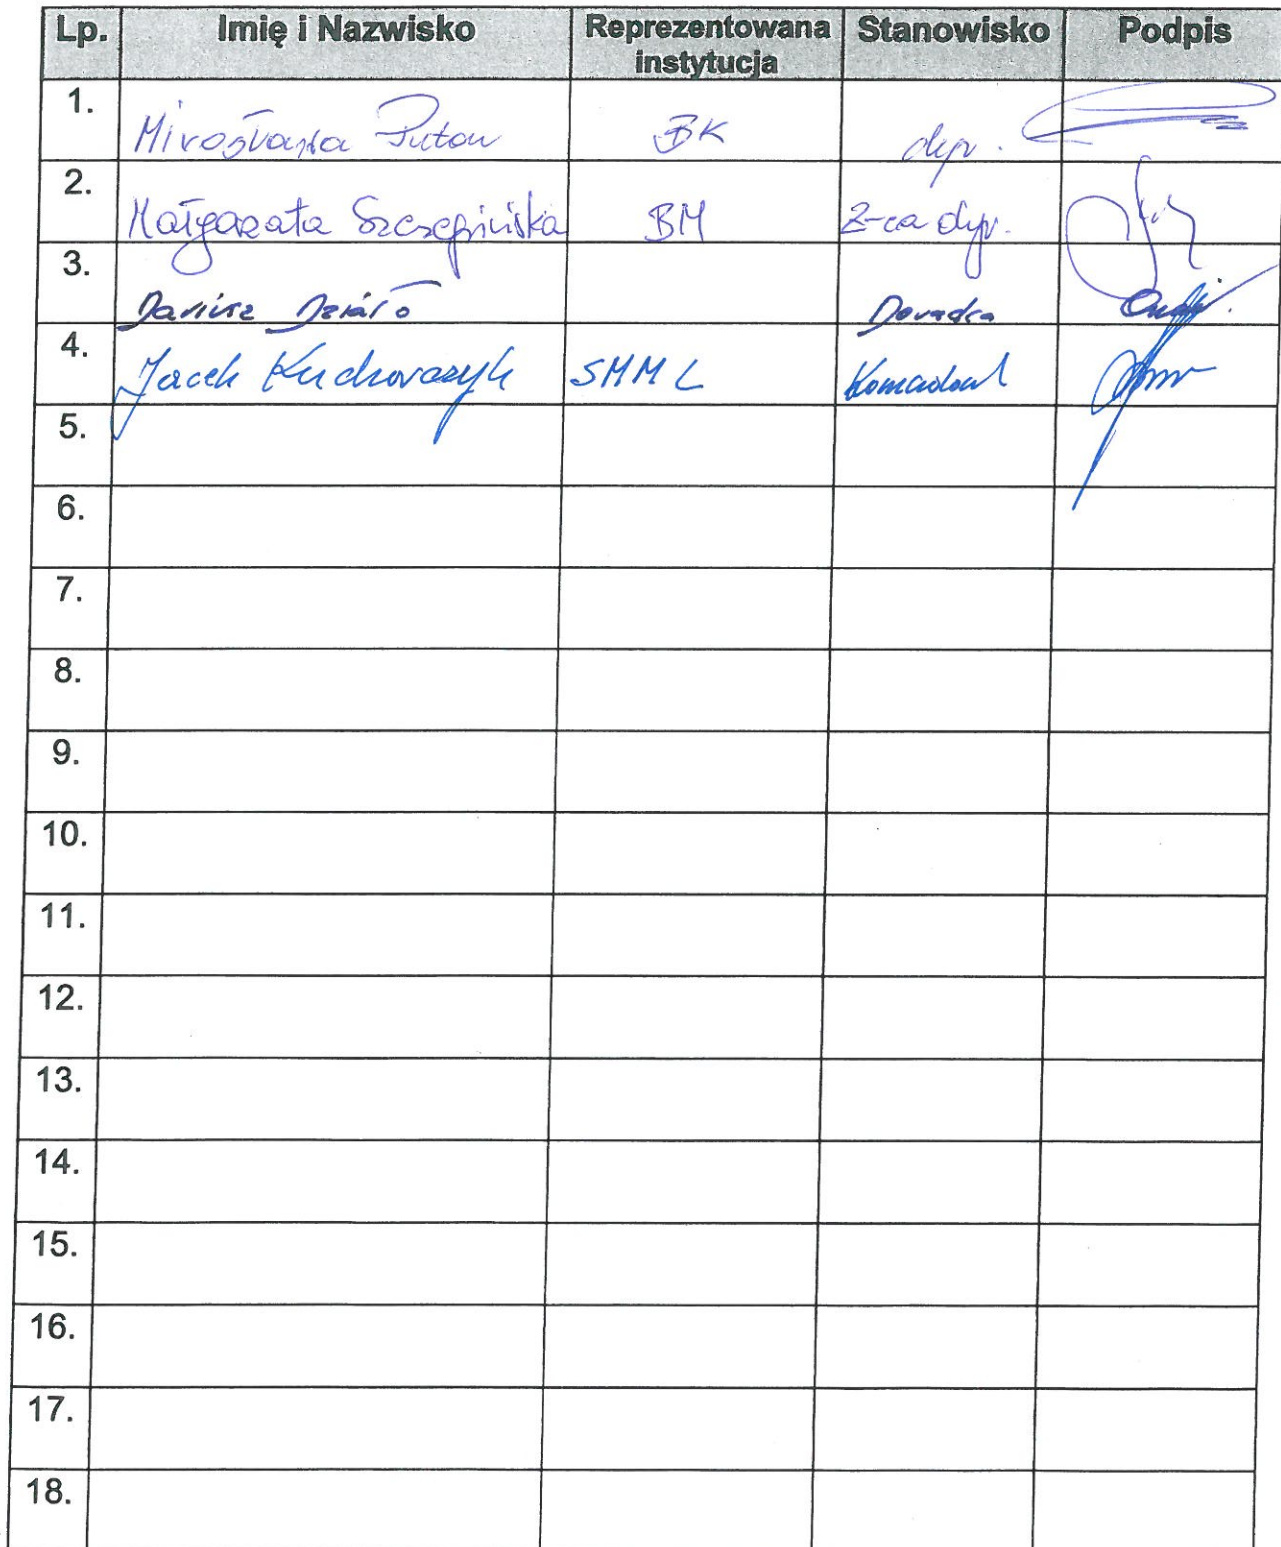 Lp. Imię i Nazwisko Reprezentowana instytucja Stanowisko Podpis
1. Mirosława Putow BK dyr.
2. Małgorzata Szczepińska BM Z-ca dyr.
3. Dariusz Działo Doradca
4. Jacek Kucharczyk SMM Ł Komendant
5.
6.
7.
8.
9.
10.
11.
12.
13.
14.
15.
16.
17.
18.